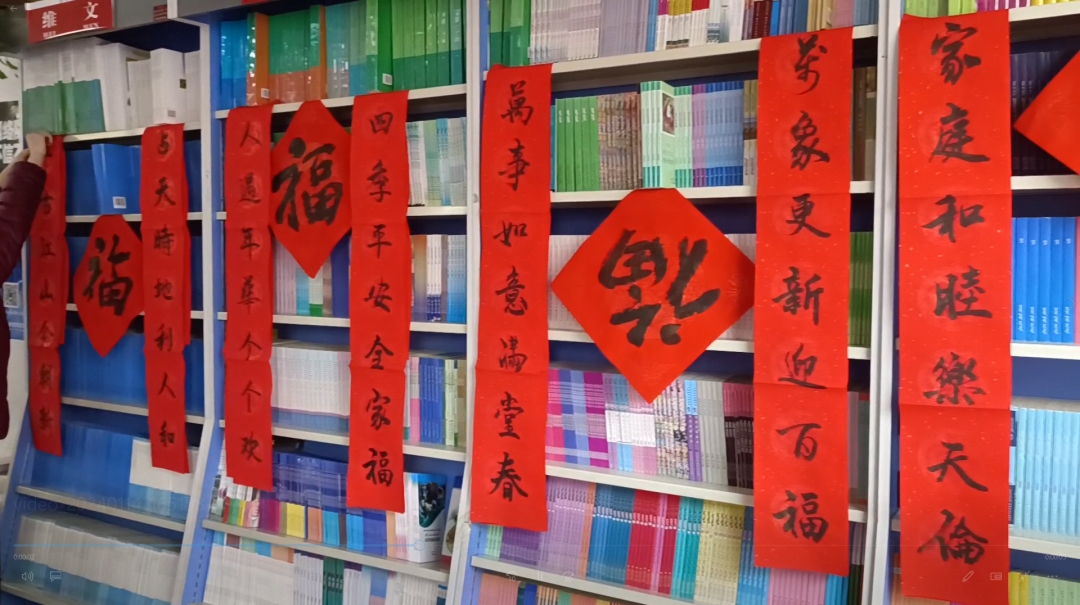 维文
古江山
与天時地利人和
福
人過年華个个欢
福
四季平安全家福
萬事如意滿堂春
福
萬象更新迎百福
家庭和睦樂天倫
0:00:02